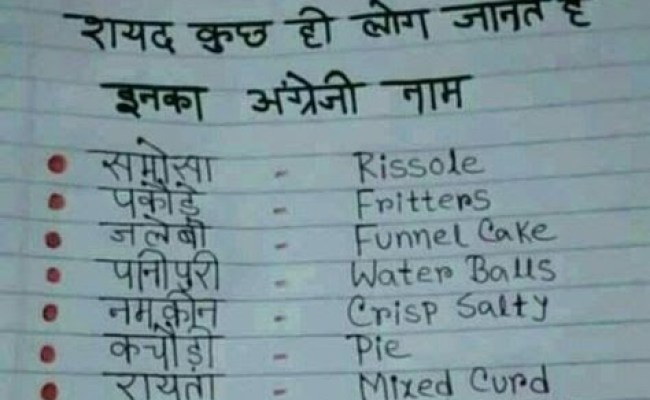 शायद कुछ ही लोग जानते है
इनका अंग्रेजी नाम
समोसा - Rissole
पकौड़े - Fritters
जलेबी - Funnel Cake
पानीपुरी - Water Balls
नमकीन - Crisp Salty
कचौड़ी - Pie
रायता - Mixed Curd